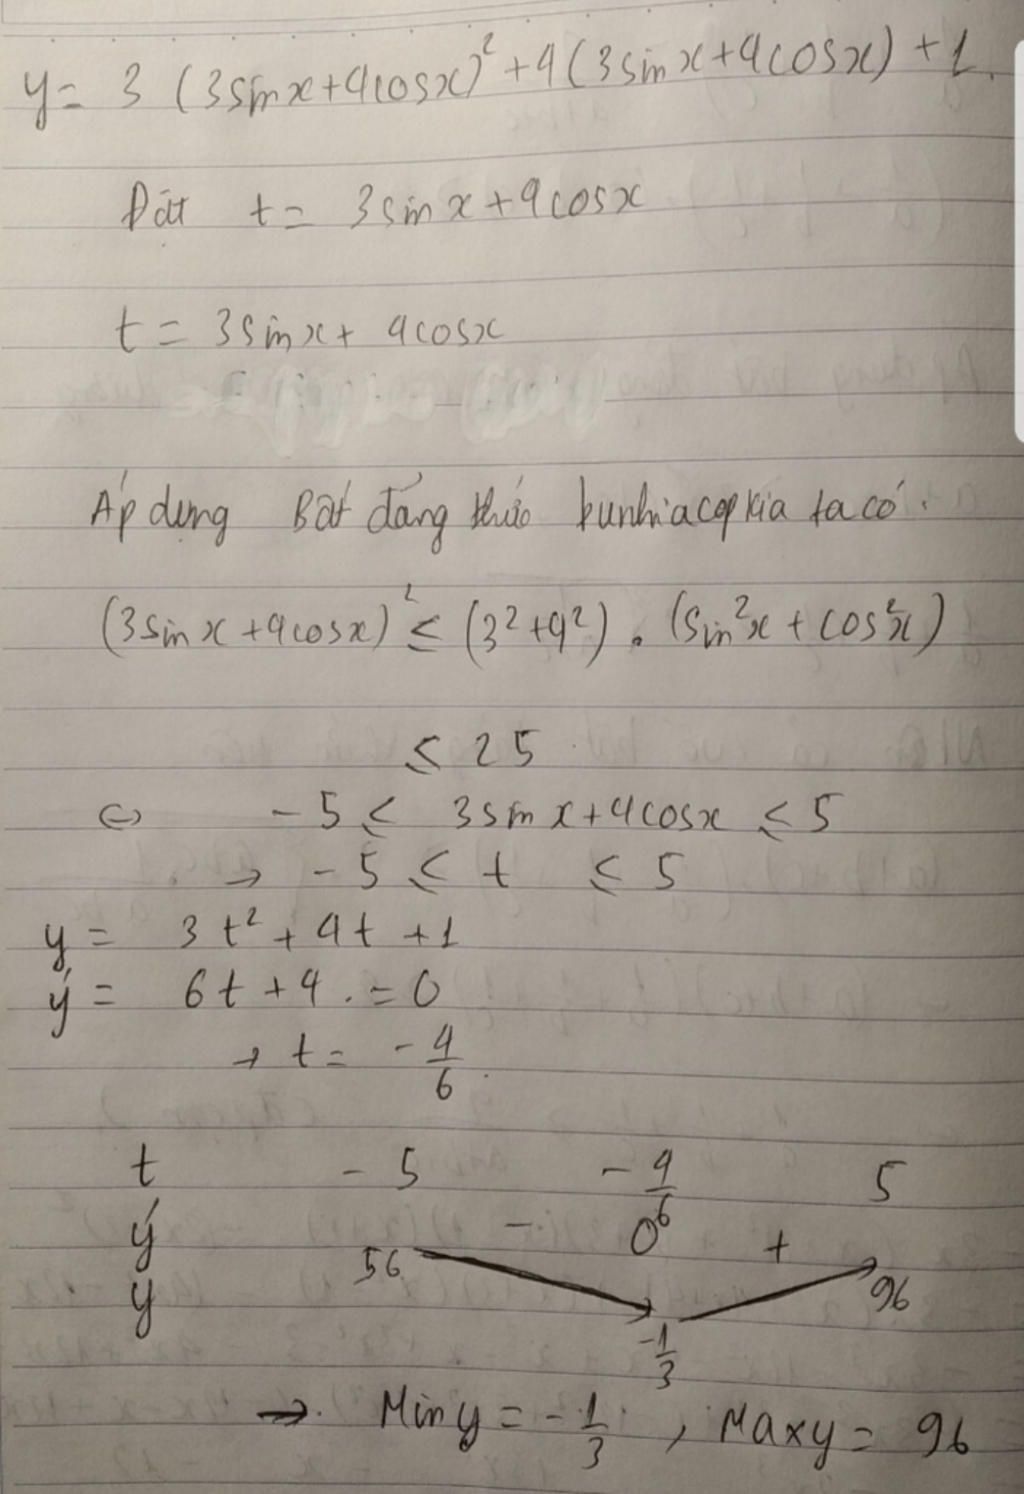 y = 3 (3sinx+4cosx)² + 4(3sinx+4cosx) + 1.
Đặt t = 3sinx+4cosx
t = 3sinx+ 4cosx
Áp dụng Bất đẳng thức bunhiacopkia ta có.
(3sinx+4cosx)² ≤ (3²+4²) . (sin²x + cos²x)
≤ 25
⇔ -5 ≤ 3sinx+4cosx ≤ 5
→ -5 ≤ t ≤ 5
y = 3t² + 4t +1
y' = 6t + 4 . = 0
→ t = -4/6
t -5 -4/6 5
y' - 0 +
y 56 -1/3 96
→ Min y = -1/3 , Maxy = 96